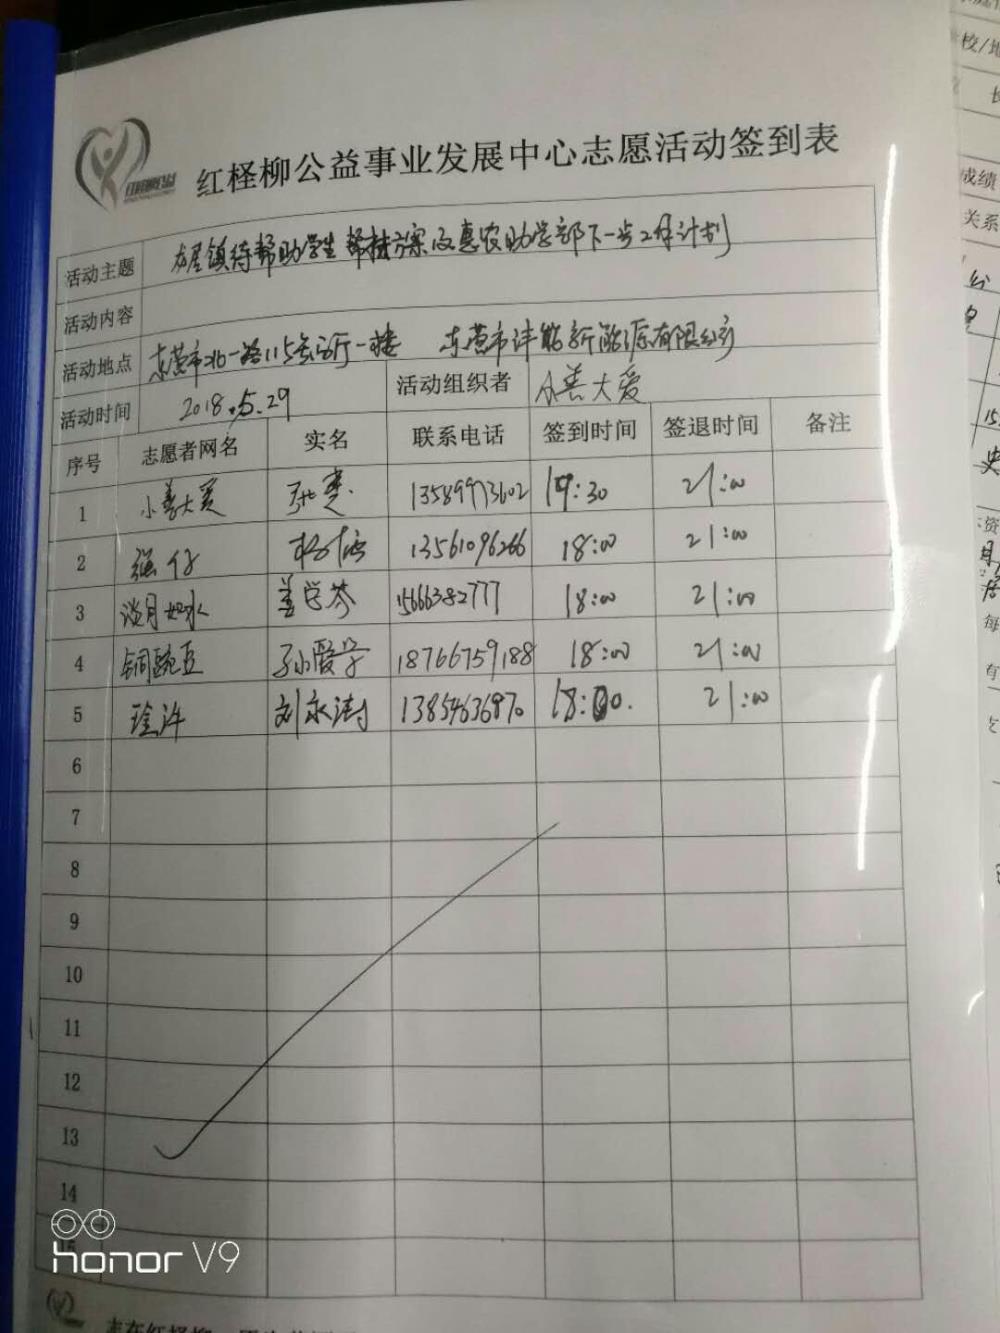 红柽柳公益事业发展中心志愿活动签到表
活动主题 龙居镇待帮助学生帮扶方案及惠农助学部下一步工作计划
活动内容
活动地点 东营市北一路115号院一楼 东营市沣能新能源有限公司
活动时间 2018.5.29 活动组织者 小善大爱
序号 志愿者网名 实名 联系电话 签到时间 签退时间 备注
1 小善大爱 13589973602 19:30 21:00
2 强仔 杨 13561096266 18:00 21:00
3 淡月如水 盖学芬 15666382777 18:00 21:00
4 铜豌豆 孙爱学 18766759188 18:00 21:00
5 刘永涛 13854636970 18:00. 21:00
6
7
8
9
10
11
12
13
14
15
honor V9
校/地
成绩
关系